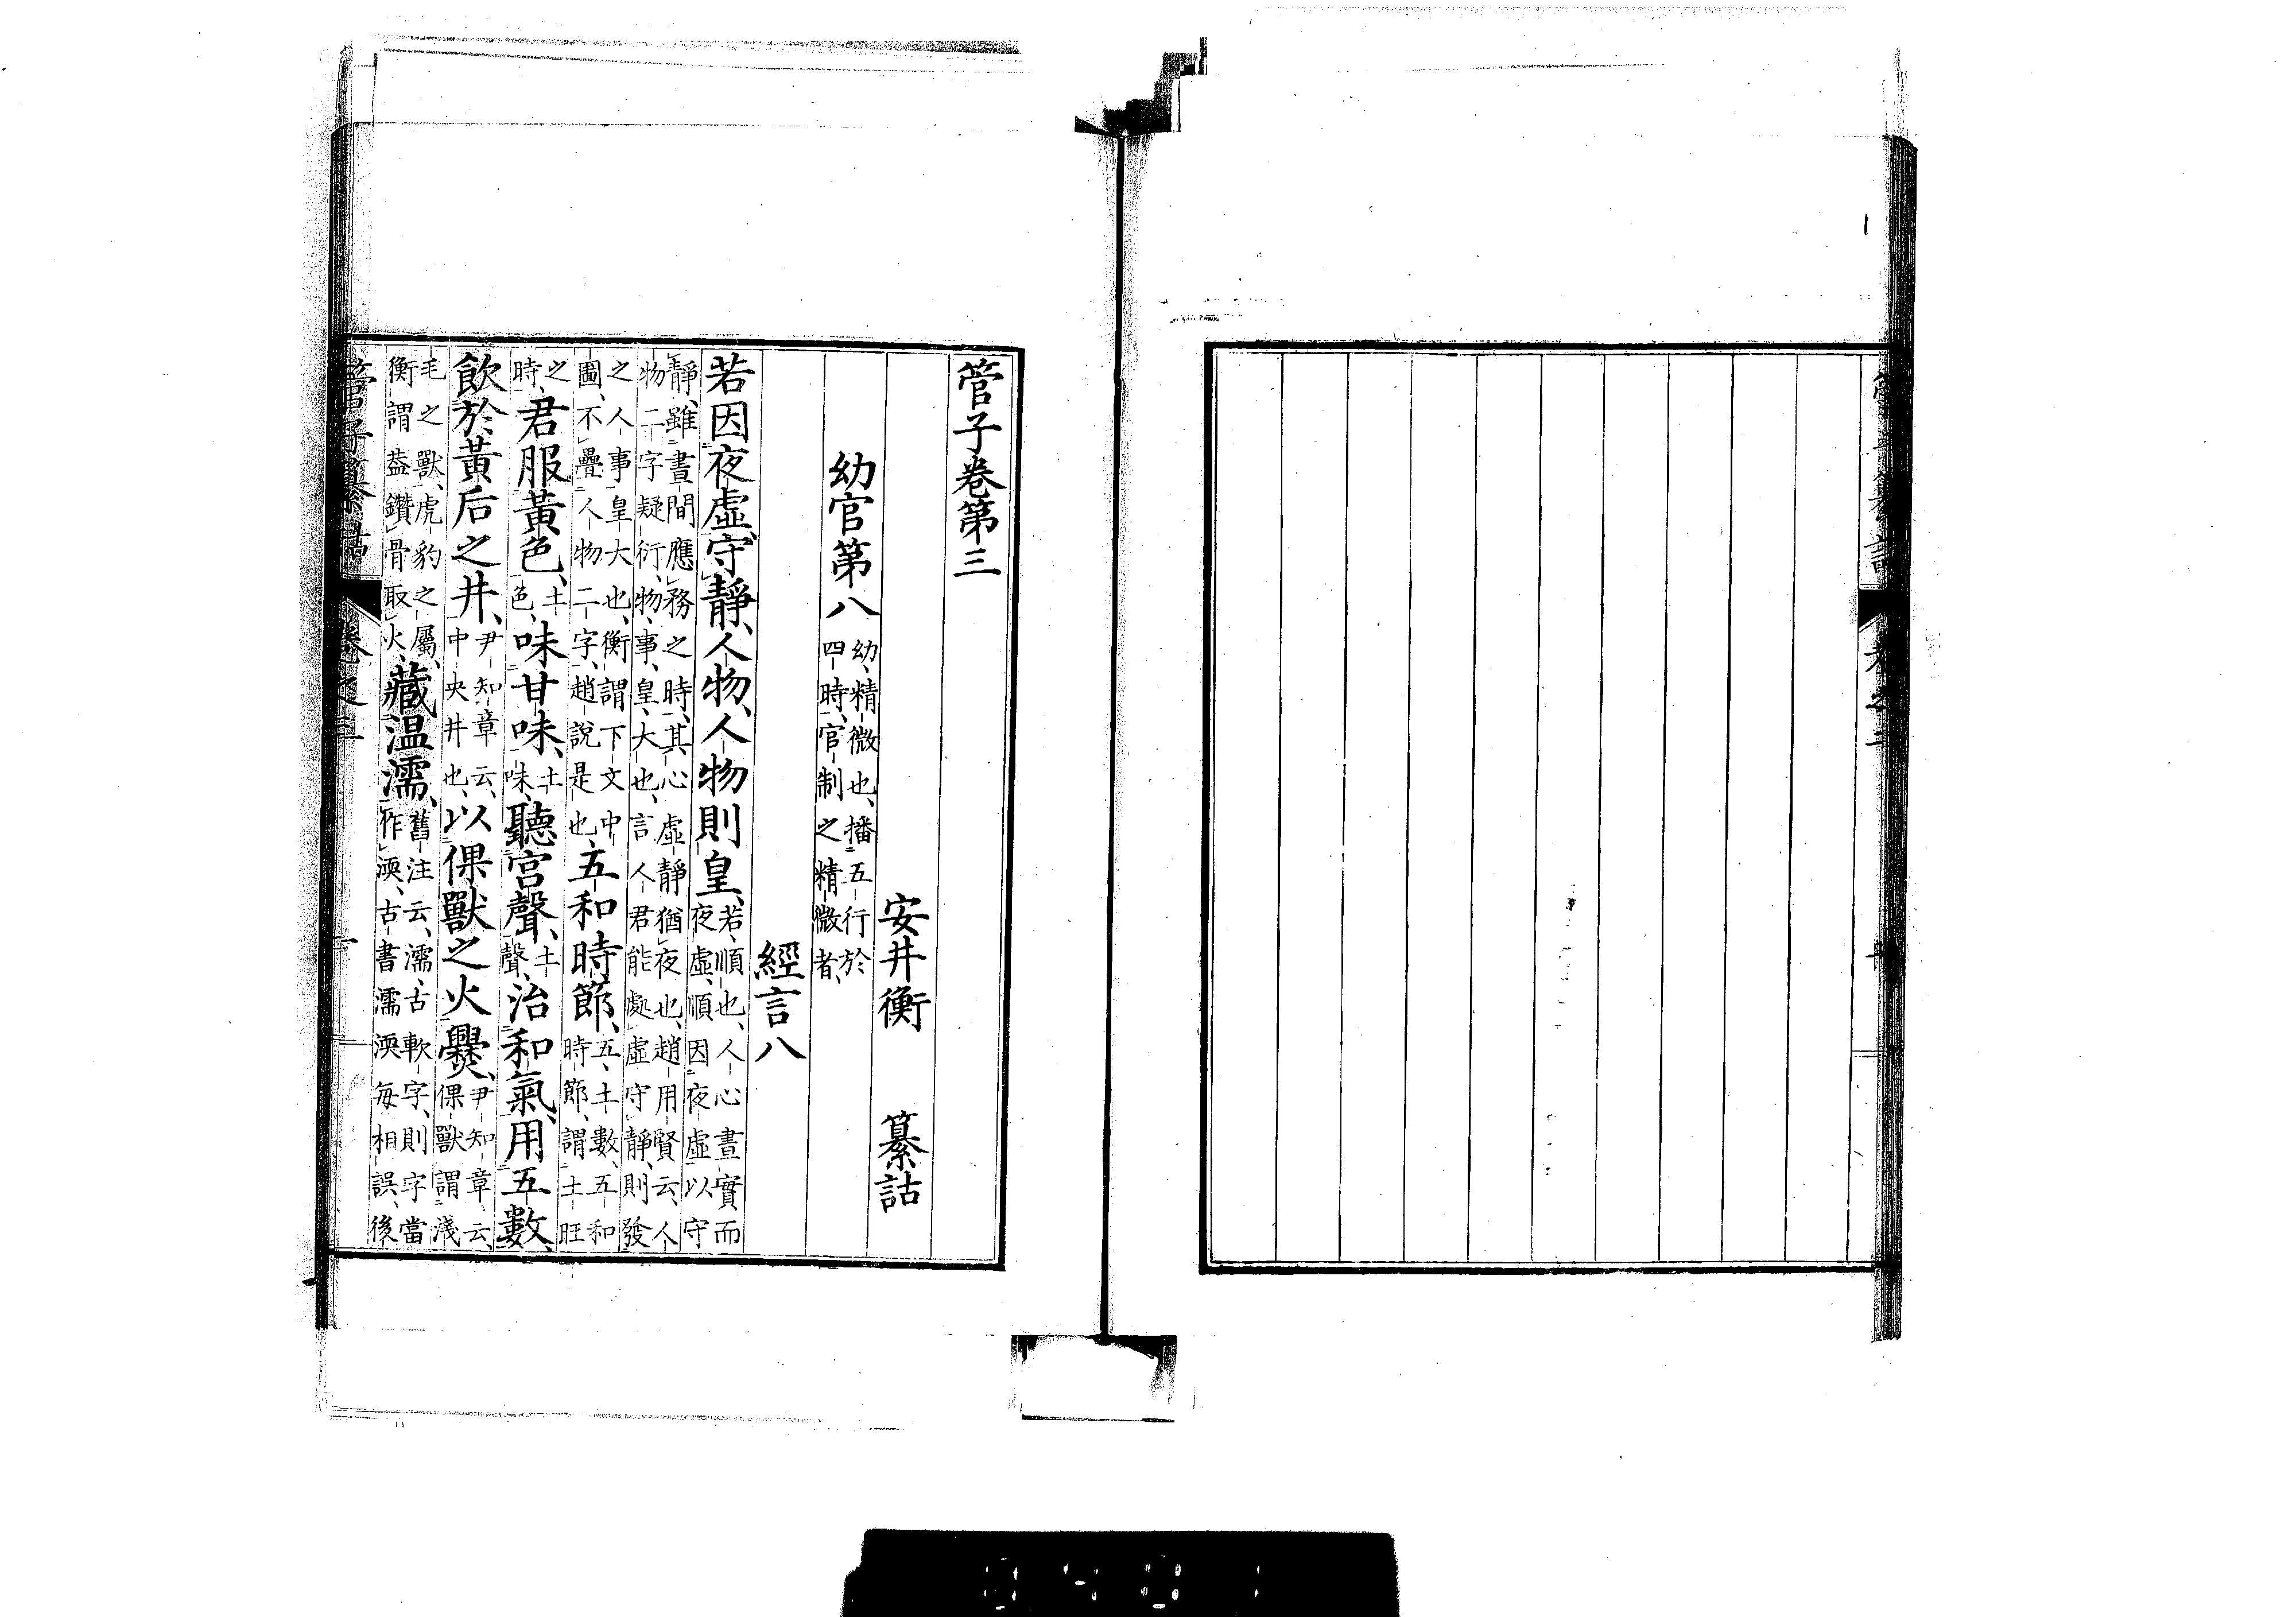 管子卷第三
安井衡 纂詁
幼官第八 幼、精微也、播五行於四時、官制之精微者、
經言八
若因夜虛守靜、人物、人物則皇、若、順也、人心晝實而夜虛、順因夜虛以守
靜、雖晝間應務之時、其心虛靜猶夜也、趙用賢云、人物二字疑衍、物、事、皇、大也、言人君能處虛守靜、則發
之人事皇大也、衡謂下文中圖、不疊人物二字、趙說是也、五和時節、五、土數、五和時節、謂土旺
之時、君服黃色、土色、味甘味、土味、聽宮聲、土聲、治和氣、用五數、
飲於黃后之井、尹知章云、中央井也、以倮獸之火爨、尹知章云、倮獸謂淺
毛之獸、虎豹之屬、衡謂葢鑽骨取火、藏温濡、舊注云、濡、古軟字、則字當作渜、古書濡渜每相誤、後
管子纂詁 卷之三 一